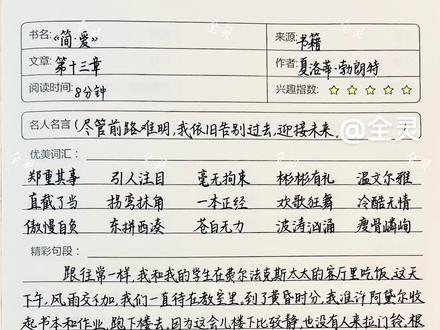 书名：《简·爱》
来源：书籍
文章：第十三章
作者：夏洛蒂·勃朗特
阅读时间：8分钟
兴趣指数：☆☆☆☆☆
名人名言（尽管前路难明，我依旧告别过去，迎接未来。）
@全灵
优美词汇：
郑重其事 引人注目 毫无拘束 彬彬有礼 温文尔雅
直截了当 拐弯抹角 一本正经 欢歌狂舞 冷酷无情
傲慢自负 东拼西凑 苍白无力 波涛汹涌 瘦骨嶙峋
精彩句段：
跟往常一样，我和我的学生在费尔法克斯太太的客厅里吃饭，这天
下午，风雨交加，我们一直待在教室里，到了黄昏时分，我准许阿黛尔收
起书本和作业，跑下楼去，因为这会儿楼下比较静，也没有人来拉门铃，根